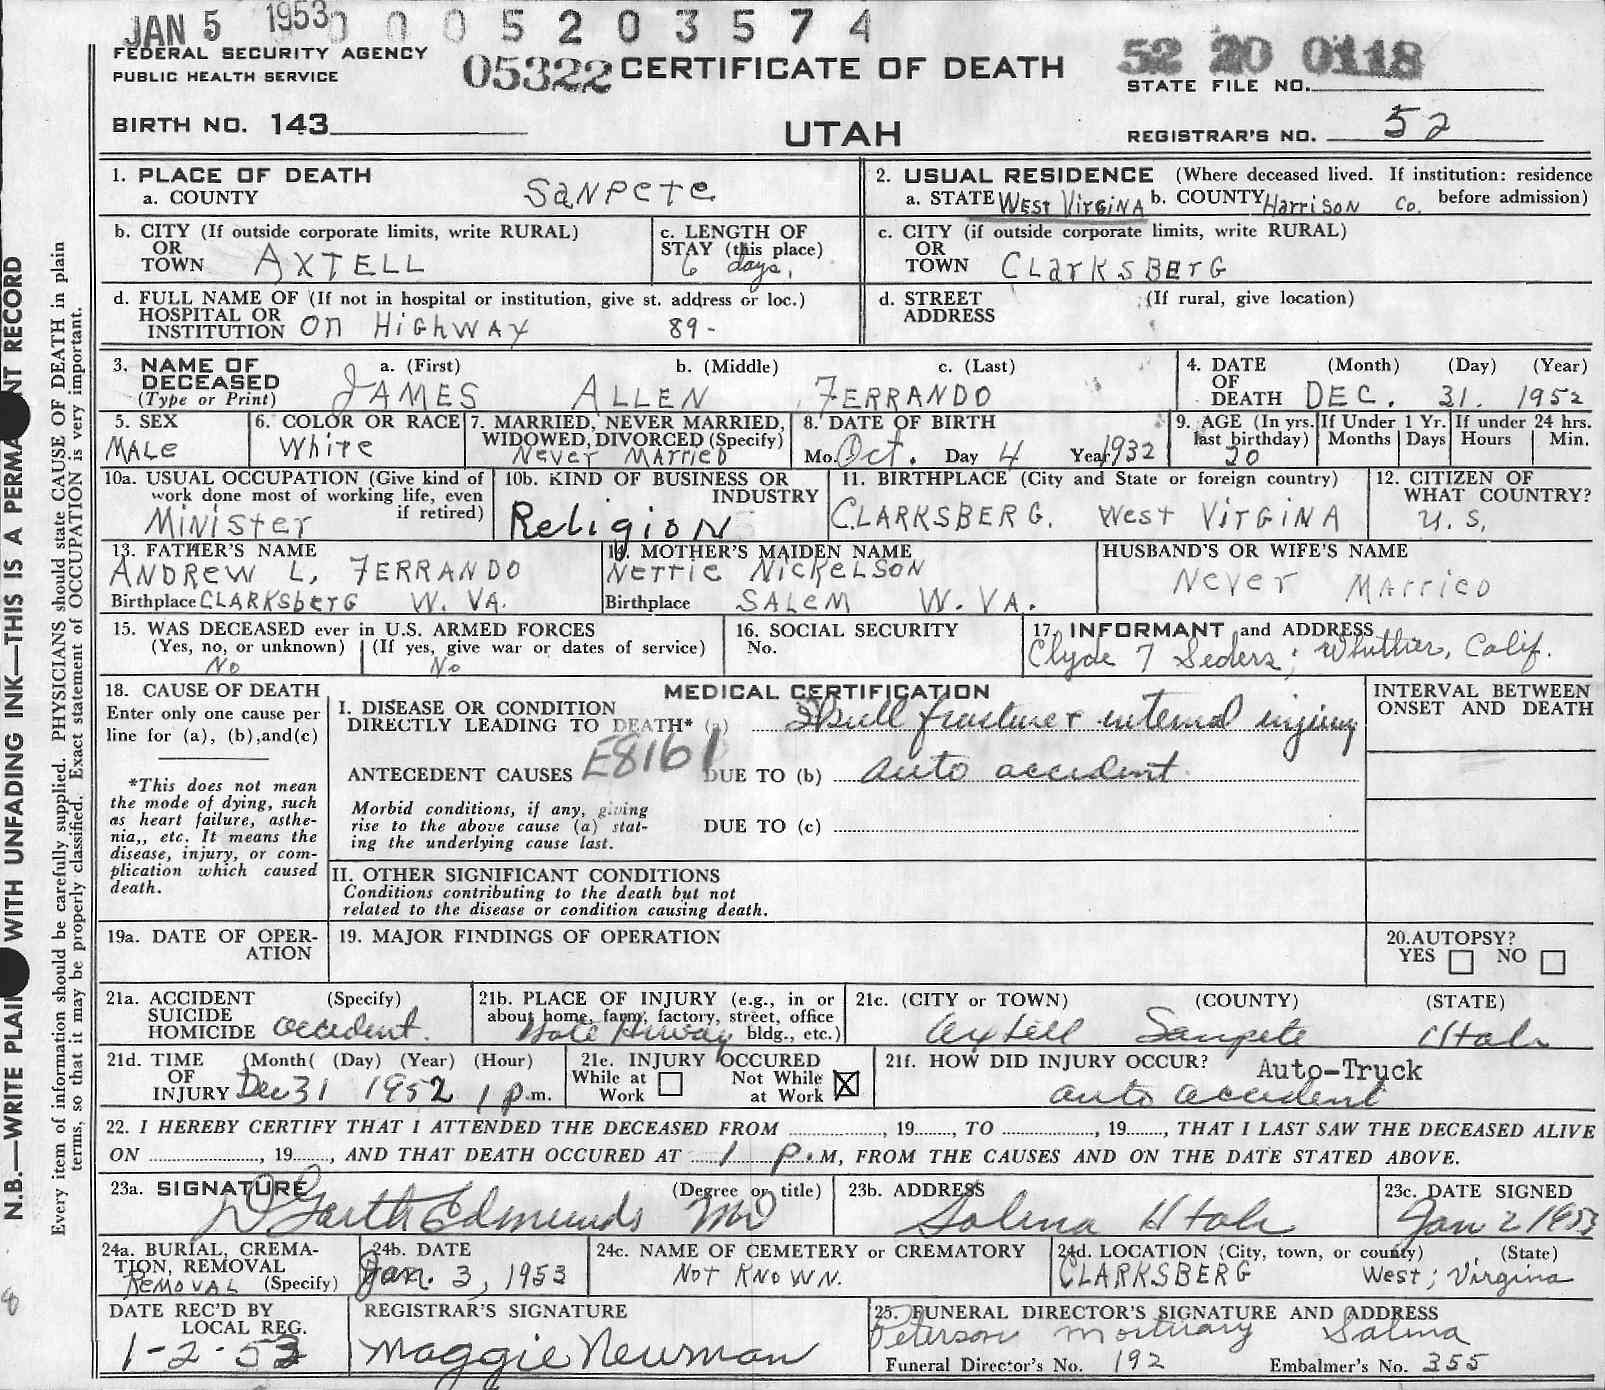 JAN 5 1953 0 0 0 5 2 0 3 5 7 4
FEDERAL SECURITY AGENCY
PUBLIC HEALTH SERVICE
05322 CERTIFICATE OF DEATH
52 20 0118
STATE FILE NO.
BIRTH NO. 143
UTAH
REGISTRAR'S NO. 52
1. PLACE OF DEATH
a. COUNTY SANPETE
2. USUAL RESIDENCE (Where deceased lived. If institution: residence
a. STATE WEST VIRGINA b. COUNTY HARRISON Co. before admission)
b. CITY (If outside corporate limits, write RURAL)
OR
TOWN AXTELL
c. LENGTH OF
STAY (this place)
6 days,
c. CITY (if outside corporate limits, write RURAL)
OR
TOWN CLARKSBERG
d. FULL NAME OF (If not in hospital or institution, give st. address or loc.)
HOSPITAL OR
INSTITUTION ON HIGHWAY 89-
d. STREET (If rural, give location)
ADDRESS
3. NAME OF a. (First) b. (Middle) c. (Last)
DECEASED
(Type or Print) JAMES ALLEN FERRANDO
4. DATE (Month) (Day) (Year)
OF
DEATH DEC. 31. 1952
5. SEX
MALE
6. COLOR OR RACE
White
7. MARRIED, NEVER MARRIED,
WIDOWED, DIVORCED (Specify)
NEVER MARRIED
8. DATE OF BIRTH
Mo. Oct. Day 4 Year 1932
9. AGE (In yrs.
last birthday)
20
If Under 1 Yr.
Months Days
If under 24 hrs.
Hours Min.
10a. USUAL OCCUPATION (Give kind of
work done most of working life, even
if retired)
MINISTER
10b. KIND OF BUSINESS OR
INDUSTRY
Religion
11. BIRTHPLACE (City and State or foreign country)
CLARKSBERG. WEST VIRGINA
12. CITIZEN OF
WHAT COUNTRY?
U.S.
13. FATHER'S NAME
ANDREW L. FERRANDO
Birthplace CLARKSBERG W. VA.
14. MOTHER'S MAIDEN NAME
NETTIE NICKELSON
Birthplace SALEM W. VA.
HUSBAND'S OR WIFE'S NAME
NEVER MARRIED
15. WAS DECEASED ever in U.S. ARMED FORCES
(Yes, no, or unknown) (If yes, give war or dates of service)
No No
16. SOCIAL SECURITY
No.
17. INFORMANT and ADDRESS
Clyde Calif.
18. CAUSE OF DEATH
Enter only one cause per
line for (a), (b), and (c)
*This does not mean
the mode of dying, such
as heart failure, asthe-
nia,, etc. It means the
disease, injury, or com-
plication which caused
death.
MEDICAL CERTIFICATION
I. DISEASE OR CONDITION
DIRECTLY LEADING TO DEATH* (a) Skull fracture + internal injury
E8161
ANTECEDENT CAUSES DUE TO (b) auto accident
Morbid conditions, if any, giving
rise to the above cause (a) stat-
ing the underlying cause last.
DUE TO (c)
II. OTHER SIGNIFICANT CONDITIONS
Conditions contributing to the death but not
related to the disease or condition causing death.
INTERVAL BETWEEN
ONSET AND DEATH
19a. DATE OF OPER-
ATION
19. MAJOR FINDINGS OF OPERATION
20. AUTOPSY?
YES NO
21a. ACCIDENT (Specify)
SUICIDE
HOMICIDE accident.
21b. PLACE OF INJURY (e.g., in or
about home, farm, factory, street, office
bldg., etc.)
Hiway
21c. (CITY or TOWN) (COUNTY) (STATE)
Axtell Sanpete Utah
21d. TIME (Month( (Day) (Year) (Hour)
OF
INJURY Dec 31 1952 1 p.m.
21e. INJURY OCCURED
While at Work
Not While at Work X
21f. HOW DID INJURY OCCUR? Auto-Truck
auto accident
22. I HEREBY CERTIFY THAT I ATTENDED THE DECEASED FROM ..............., 19......, TO ..............., 19......, THAT I LAST SAW THE DECEASED ALIVE
ON ..............., 19......, AND THAT DEATH OCCURED AT 1 P.M, FROM THE CAUSES AND ON THE DATE STATED ABOVE.
23a. SIGNATURE (Degree or title)
D Garth Edmunds MD
23b. ADDRESS
Salina Utah
23c. DATE SIGNED
Jan 2 1953
24a. BURIAL, CREMA-
TION, REMOVAL
REMOVAL (Specify)
24b. DATE
Jan. 3, 1953
24c. NAME OF CEMETERY or CREMATORY
NOT KNOWN.
24d. LOCATION (City, town, or county) (State)
CLARKSBERG West Virgina
DATE REC'D BY
LOCAL REG.
1-2-53
REGISTRAR'S SIGNATURE
Maggie Newman
25. FUNERAL DIRECTOR'S SIGNATURE AND ADDRESS
Peterson Mortuary Salina
Funeral Director's No. 192 Embalmer's No. 355
N.B.—WRITE PLAI WITH UNFADING INK—THIS IS A PERMA NT RECORD
Every item of information should be carefully supplied. PHYSICIANS should state CAUSE OF DEATH in plain
terms, so that it may be properly classified. Exact statement of OCCUPATION is very important.
8